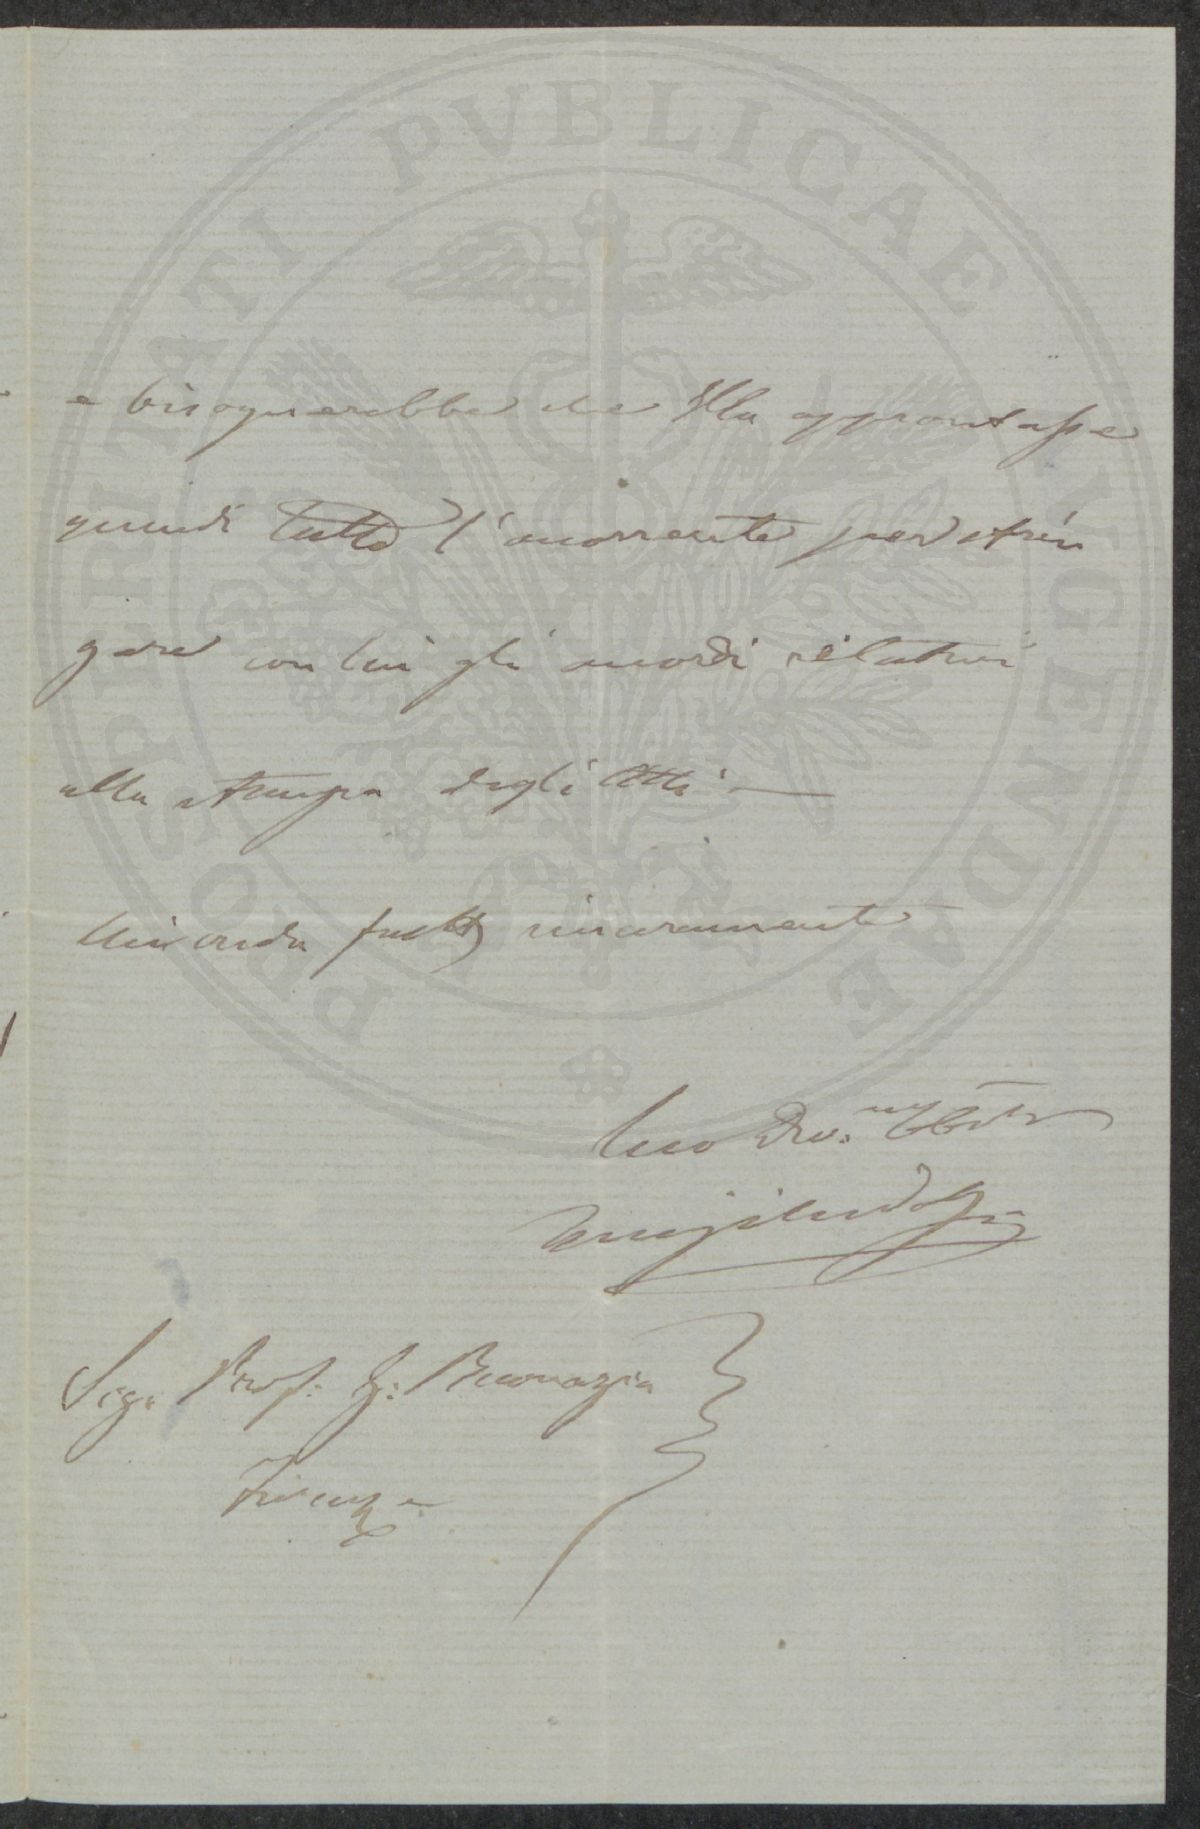 PROSPERITATI PVBLICAE AVGENDAE
e bisognerebbe che Ella approntasse
quindi tutto l'occorrente per strin
gere con lui gli accordi relativi
alla stampa degli Atti —
Mi creda frattto sinceramente
Suo Dev.mo
Sig. Prof. G: Buonazia
Firenze